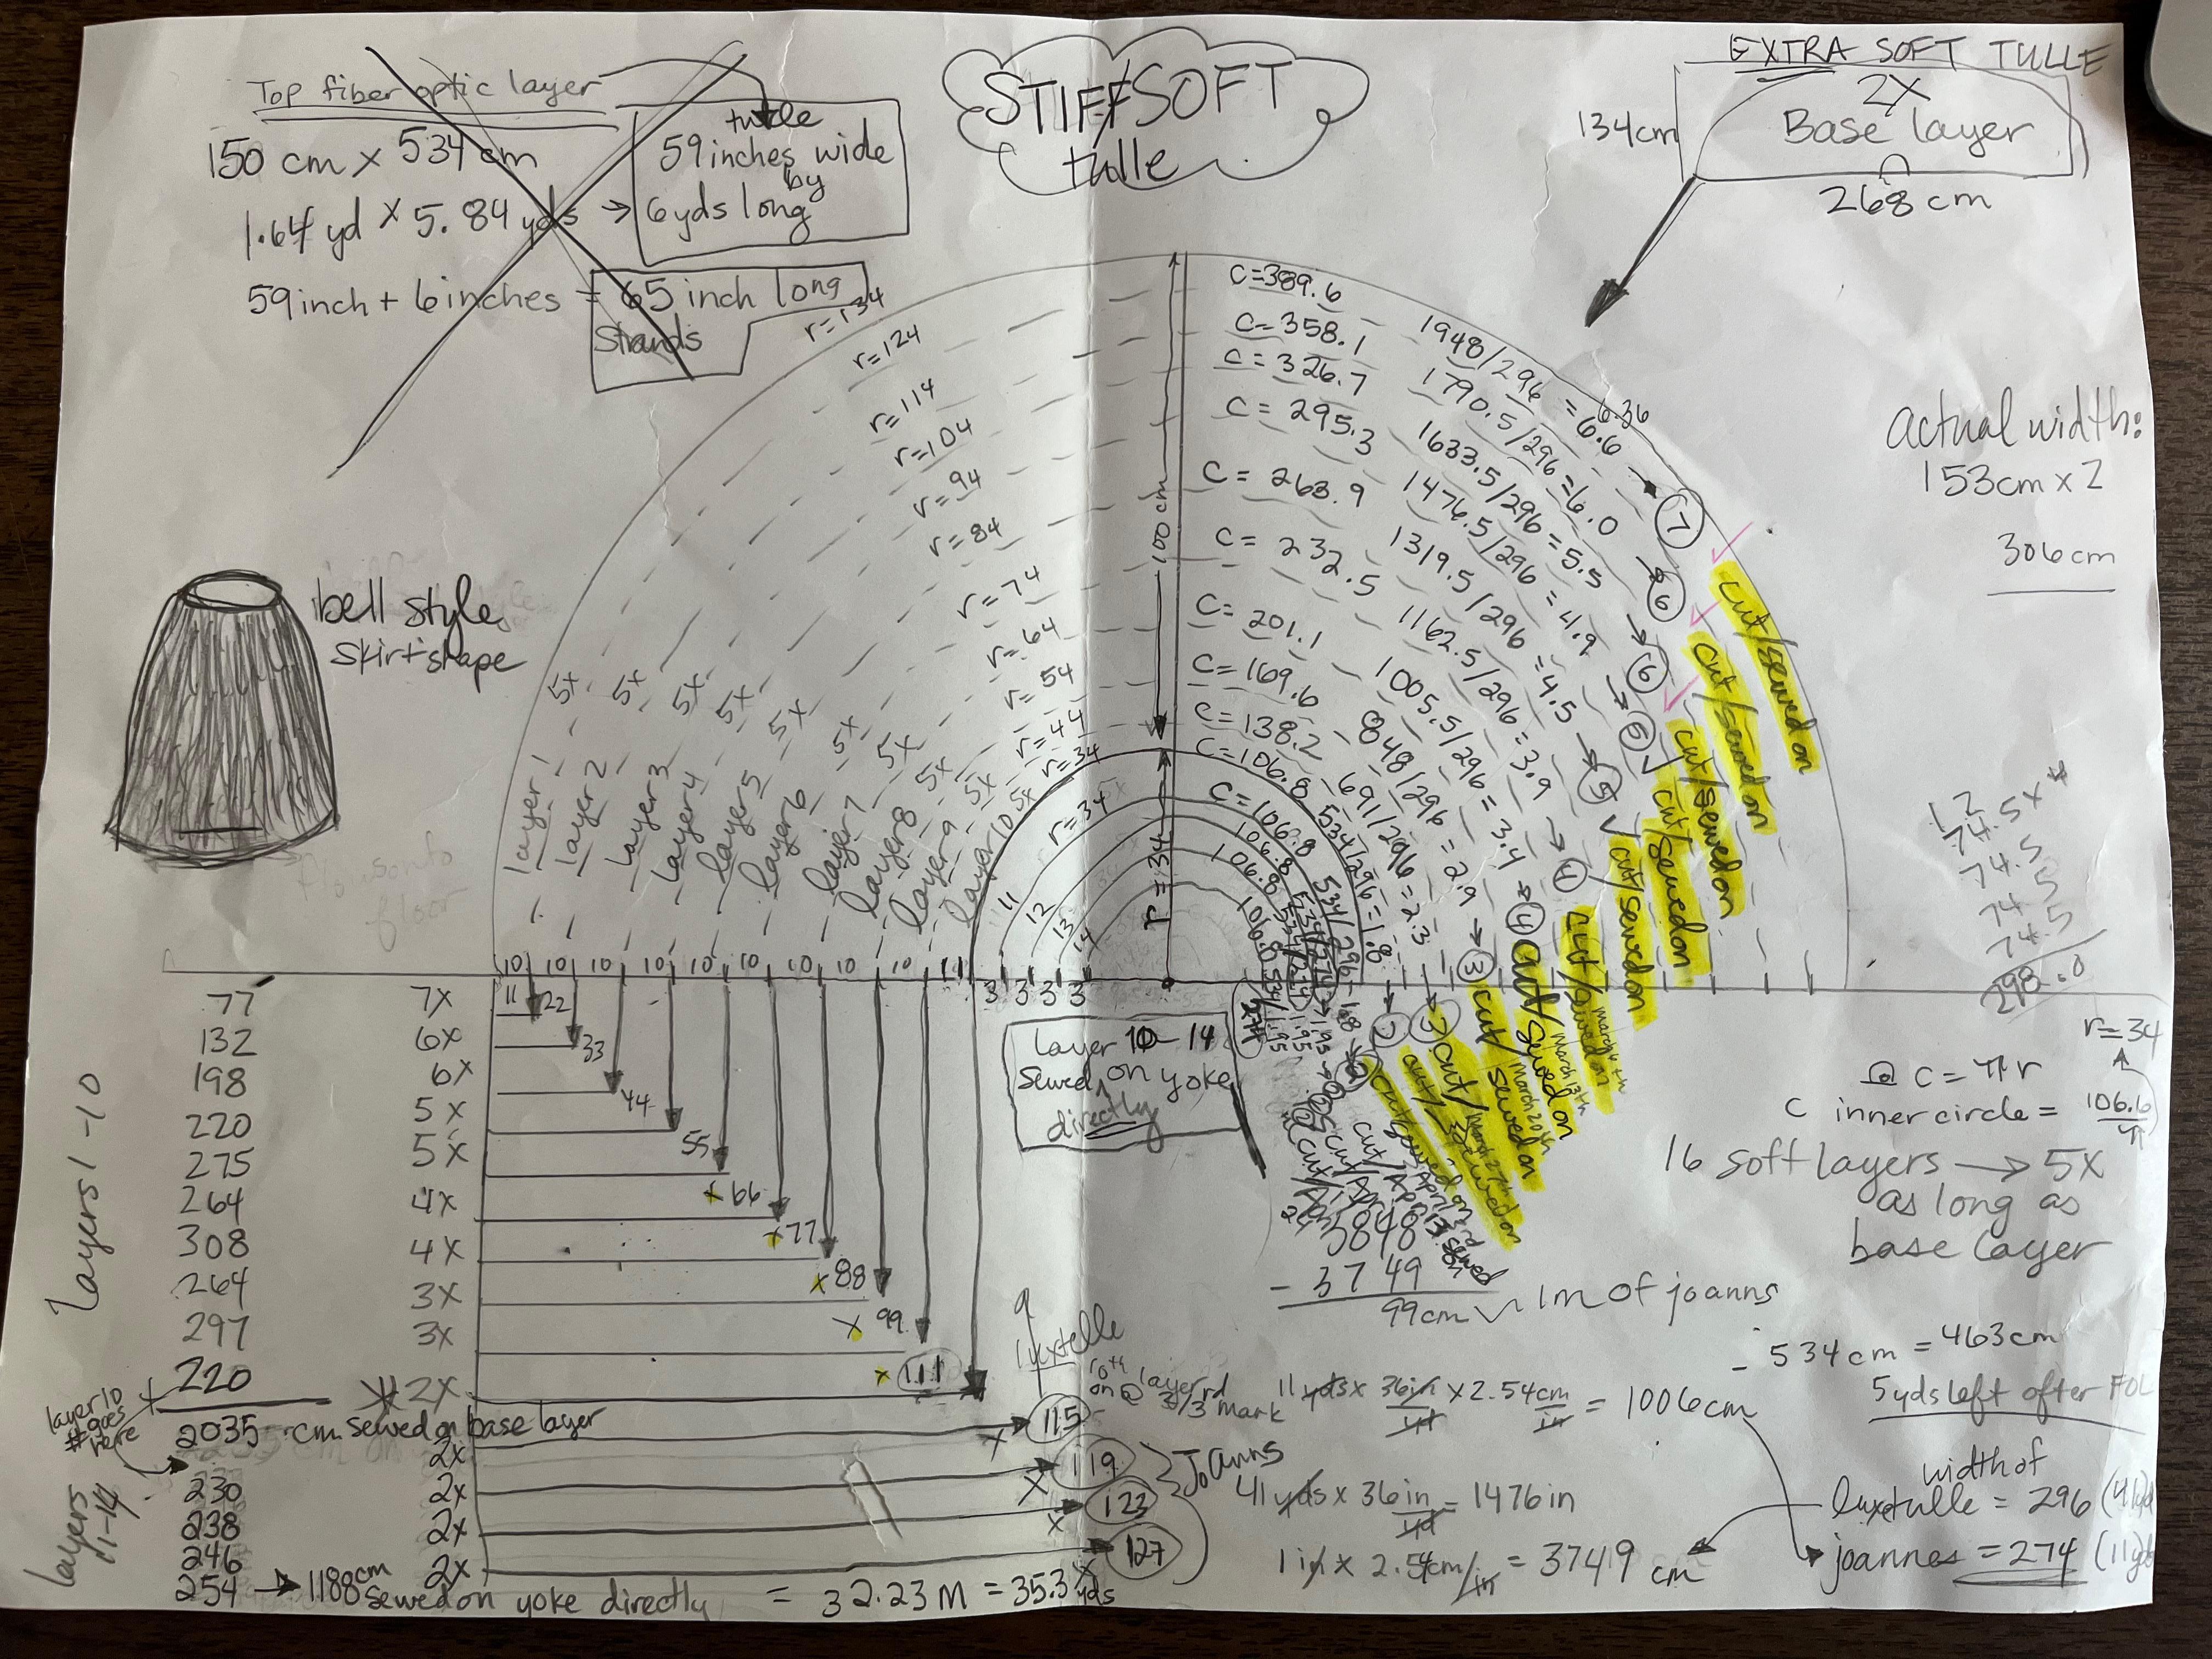 Top fiber optic layer
150 cm x 534 cm
1.64 yd x 5.84 yds →
tulle
59 inches wide
by
6 yds long
59 inch + 6 inches = 65 inch long
Strands
STIFF/SOFT
tulle
EXTRA SOFT TULLE
2X
Base layer
134cm
268 cm
actual width:
153cm x 2
306cm
bell style
skirt shape
floor
r=134
r=124
r=114
r=104
r=94
r=84
r=74
r=64
r=54
r=44
r=34
r=34
100 cm
r=34
C=389.6
C=358.1
C=326.7
C=295.3
C=263.9
C=232.5
C=201.1
C=169.6
C=138.2
C=106.8
C=106.8
106.8
106.8
106.8
1948/296 = 6.6 6.36 → 7
1790.5/296 = 6.0 → 6
1633.5/296 = 5.5 → 6
1476.5/296 = 4.9 →
1319.5/296 = 4.5 → 5
1162.5/296 = 3.9 → 4
1005.5/296 = 3.4 → 4
848/296 = 2.9 → 3
691/296 = 2.3
534/296 = 1.8
cut/sewed on
cut/sewed on
cut/sewed on
cut/sewed on
cut/sewed on
cut/sewed on March 6th
cut/sewed on March 13th
cut/sewed on March 20th
cut/sewed on March 27th
cut/sewed on April 3rd
5x layer 1
5x layer 2
5x layer 3
5x layer 4
5x layer 5
5x layer 6
5x layer 7
5x layer 8
5x layer 9
5x layer 10
11
12
13
14
10 10 10 10 10 10 10 10 10 11 3 3 3 3
12
74.5 x 4
74.5
74.5
74.5
298.0
layers 1-10
77 7x 11
132 6x 22
198 6x 33
220 5x 44
275 5x 55
264 4x x 66
308 4x x 77
264 3x x 88
297 3x x 99
220 2x x 111
layer 10
# goes
here
2035 cm sewed on base layer
layers
11-14
230 2x 115
238 2x 119
246 2x 123
254 2x 127
→ 1188cm
sewed on yoke directly = 32.23 M = 35.3 yds
layer 10-14
sewed on yoke
directly
luxtulle
10th layer
on @ 3/3rd mark
Joanns
3848
- 3749
99cm 1m of joanns
r=34
C = πr
C inner circle = 106.6/π
16 soft layers → 5x
as long as
base layer
11 yds x 36in/yd x 2.54cm/in = 1006cm
- 534cm = 463cm
5yds left after FOL
41 yds x 36in/yd = 1476 in
1 in x 2.54cm/in = 3749 cm
width of
luxtulle = 296 (41yd
joannes = 274 (11yd